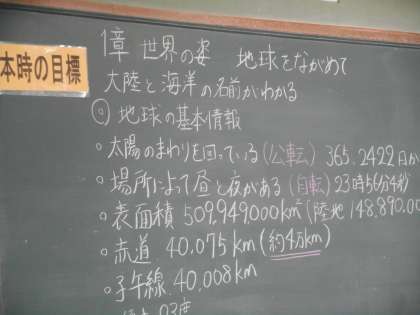 本時の目標
1章 世界の姿 地球をながめて
大陸と海洋の名前がわかる
◎地球の基本情報
・太陽のまわりを回っている(公転) 365.2422日か
・場所によって昼と夜がある(自転) 23時56分4秒
・表面積 509,949,000km²(陸地 148,890,00
・赤道 40,075km(約4万km)
・子午線 40,008km